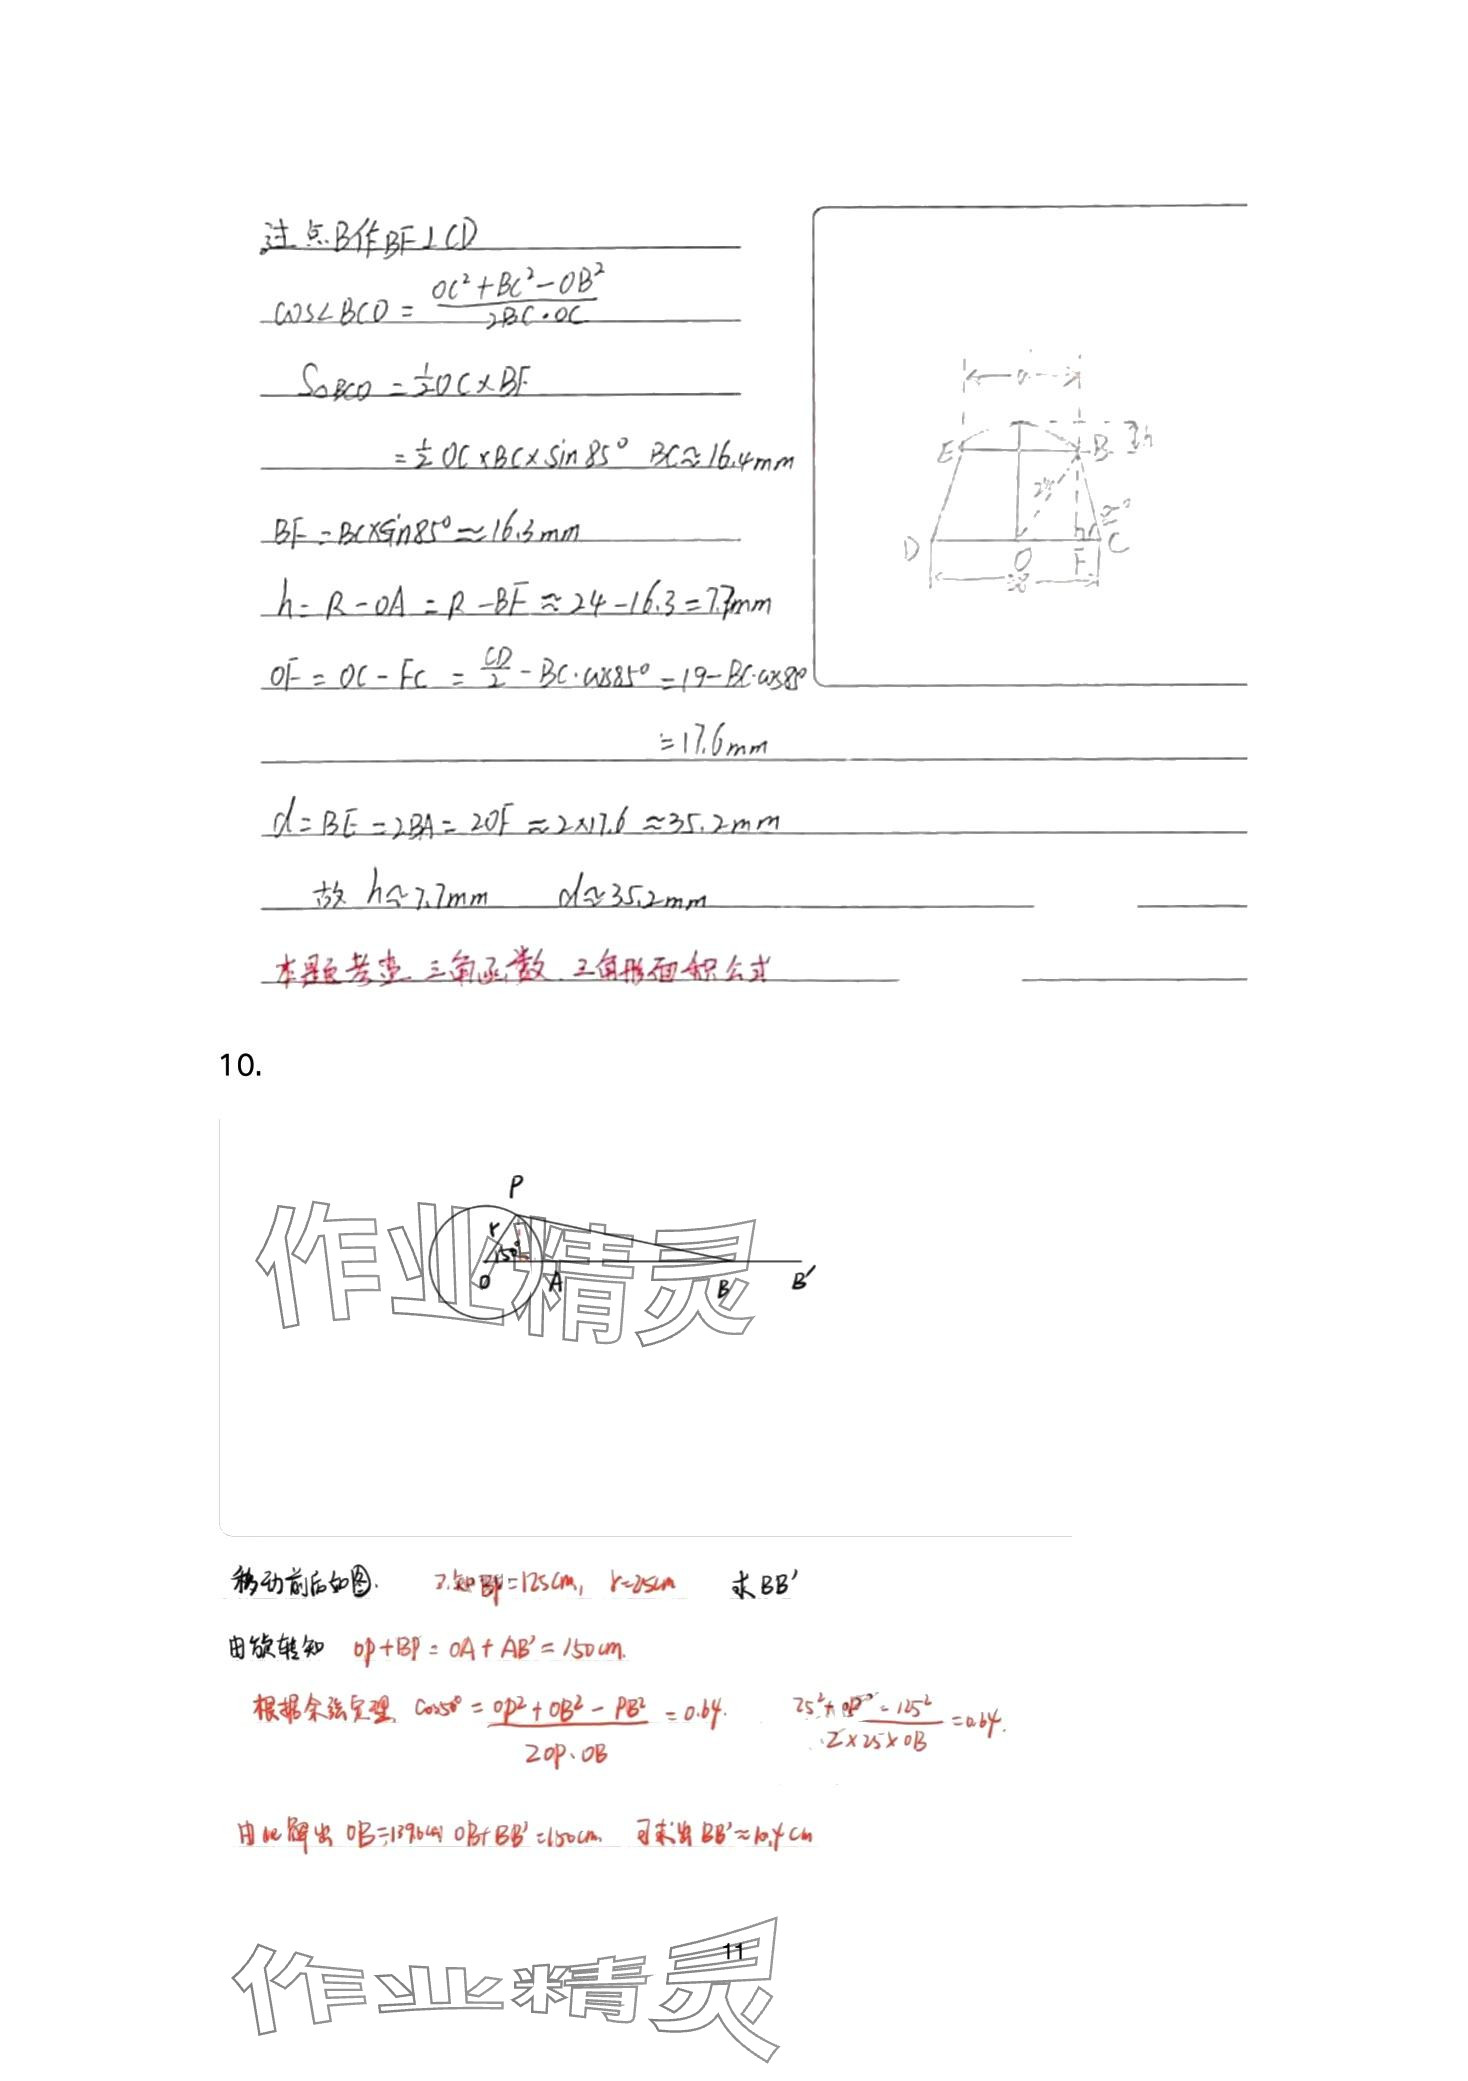 过点B作BF⊥CD
cos∠BCO = (OC²+BC²-OB²)/(2BC·OC)
S△BCO = ½OC×BF
= ½OC×BC×sin85° BC≈16.4mm
BF=BC×sin85°≈16.3mm
h=R-OA=R-BF≈24-16.3=7.7mm
OF=OC-FC=CD/2-BC·cos85°=19-BC·cos85°
=17.6mm
d=BE=2BA=2OF≈2×17.6≈35.2mm
故 h≈7.7mm d≈35.2mm
本题考查三角函数、三角形面积公式
h
E
B
D
O
F
C
38
10.
P
r
50°
O
A
B
B′
作业精灵
移动前后如图.
已知BP=125cm, r=25cm 求BB′
由旋转知 OP+BP=OA+AB′=150cm.
根据余弦定理 cos50°=(OP²+OB²-PB²)/(2OP·OB)=0.64.
=0.64.
由此解出 OB=139.6cm OB+BB′=150cm. 可求出BB′≈10.4cm
11
作业精灵